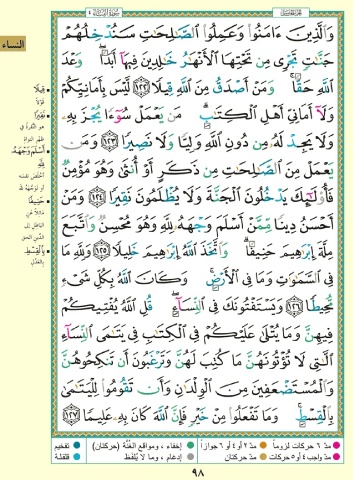 سورة النساء ٤
الجزء الخامس
وَالَّذِينَ ءَامَنُوا وَعَمِلُوا الصَّـٰلِحَـٰتِ سَنُدْخِلُهُمْ
جَنَّـٰتٍ تَجْرِى مِن تَحْتِهَا الْأَنْهَـٰرُ خَـٰلِدِينَ فِيهَآ أَبَدًا ۖ وَعْدَ
اللَّهِ حَقًّا ۚ وَمَنْ أَصْدَقُ مِنَ اللَّهِ قِيلًا ﴿١٢٢﴾ لَّيْسَ بِأَمَانِيِّكُمْ
وَلَآ أَمَانِىِّ أَهْلِ الْكِتَـٰبِ ۗ مَن يَعْمَلْ سُوٓءًا يُجْزَ بِهِۦ
وَلَا يَجِدْ لَهُۥ مِن دُونِ اللَّهِ وَلِيًّا وَلَا نَصِيرًا ﴿١٢٣﴾ وَمَن
يَعْمَلْ مِنَ الصَّـٰلِحَـٰتِ مِن ذَكَرٍ أَوْ أُنثَىٰ وَهُوَ مُؤْمِنٌ
فَأُولَـٰٓئِكَ يَدْخُلُونَ الْجَنَّةَ وَلَا يُظْلَمُونَ نَقِيرًا ﴿١٢٤﴾ وَمَنْ
أَحْسَنُ دِينًا مِّمَّنْ أَسْلَمَ وَجْهَهُۥ لِلَّهِ وَهُوَ مُحْسِنٌ وَاتَّبَعَ
مِلَّةَ إِبْرَٰهِيمَ حَنِيفًا ۗ وَاتَّخَذَ اللَّهُ إِبْرَٰهِيمَ خَلِيلًا ﴿١٢٥﴾ وَلِلَّهِ مَا
فِى السَّمَـٰوَٰتِ وَمَا فِى الْأَرْضِ ۚ وَكَانَ اللَّهُ بِكُلِّ شَىْءٍ
مُّحِيطًا ﴿١٢٦﴾ وَيَسْتَفْتُونَكَ فِى النِّسَآءِ ۖ قُلِ اللَّهُ يُفْتِيكُمْ
فِيهِنَّ وَمَا يُتْلَىٰ عَلَيْكُمْ فِى الْكِتَـٰبِ فِى يَتَـٰمَى النِّسَآءِ
الَّـٰتِى لَا تُؤْتُونَهُنَّ مَا كُتِبَ لَهُنَّ وَتَرْغَبُونَ أَن تَنكِحُوهُنَّ
وَالْمُسْتَضْعَفِينَ مِنَ الْوِلْدَٰنِ وَأَن تَقُومُوا لِلْيَتَـٰمَىٰ
بِالْقِسْطِ ۚ وَمَا تَفْعَلُوا مِنْ خَيْرٍ فَإِنَّ اللَّهَ كَانَ بِهِۦ عَلِيمًا ﴿١٢٧﴾
النساء
قِيلًا
قولاً
نَقِيرًا
أَسْلَمَ وَجْهَهُ
لِلَّهِ
حَنِيفًا
بِالْقِسْطِ
بالعدل
مدّ ٦ حركات لزوماً
مدّ ٢ أو ٤ أو ٦ جوازاً
إخفاء، ومواقع الغنّة (حركتان)
تفخيم
مدّ واجب ٤ أو ٥ حركات
مدّ حركتان
إدغام، وما لا يُلفظ
قلقلة
٩٨